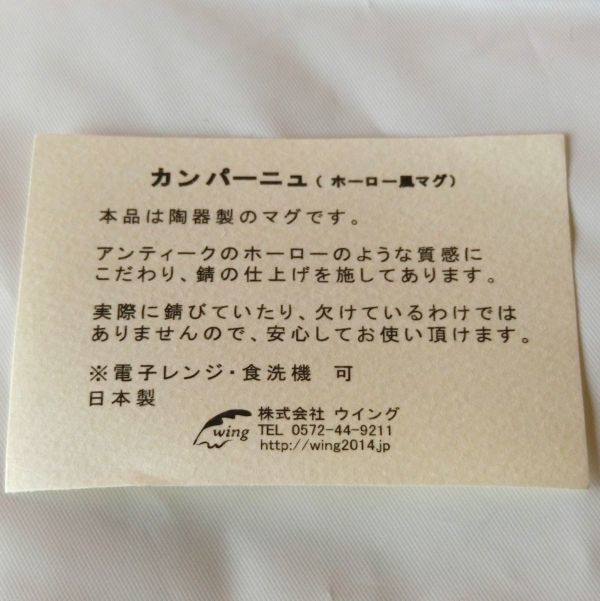 カンパーニュ（ホーロー風マグ）
本品は陶器製のマグです。
アンティークのホーローのような質感に
こだわり、錆の仕上げを施してあります。
実際に錆びていたり、欠けているわけでは
ありませんので、安心してお使い頂けます。
※電子レンジ・食洗機　可
日本製
wing
株式会社 ウイング
TEL 0572-44-9211
http://wing2014.jp